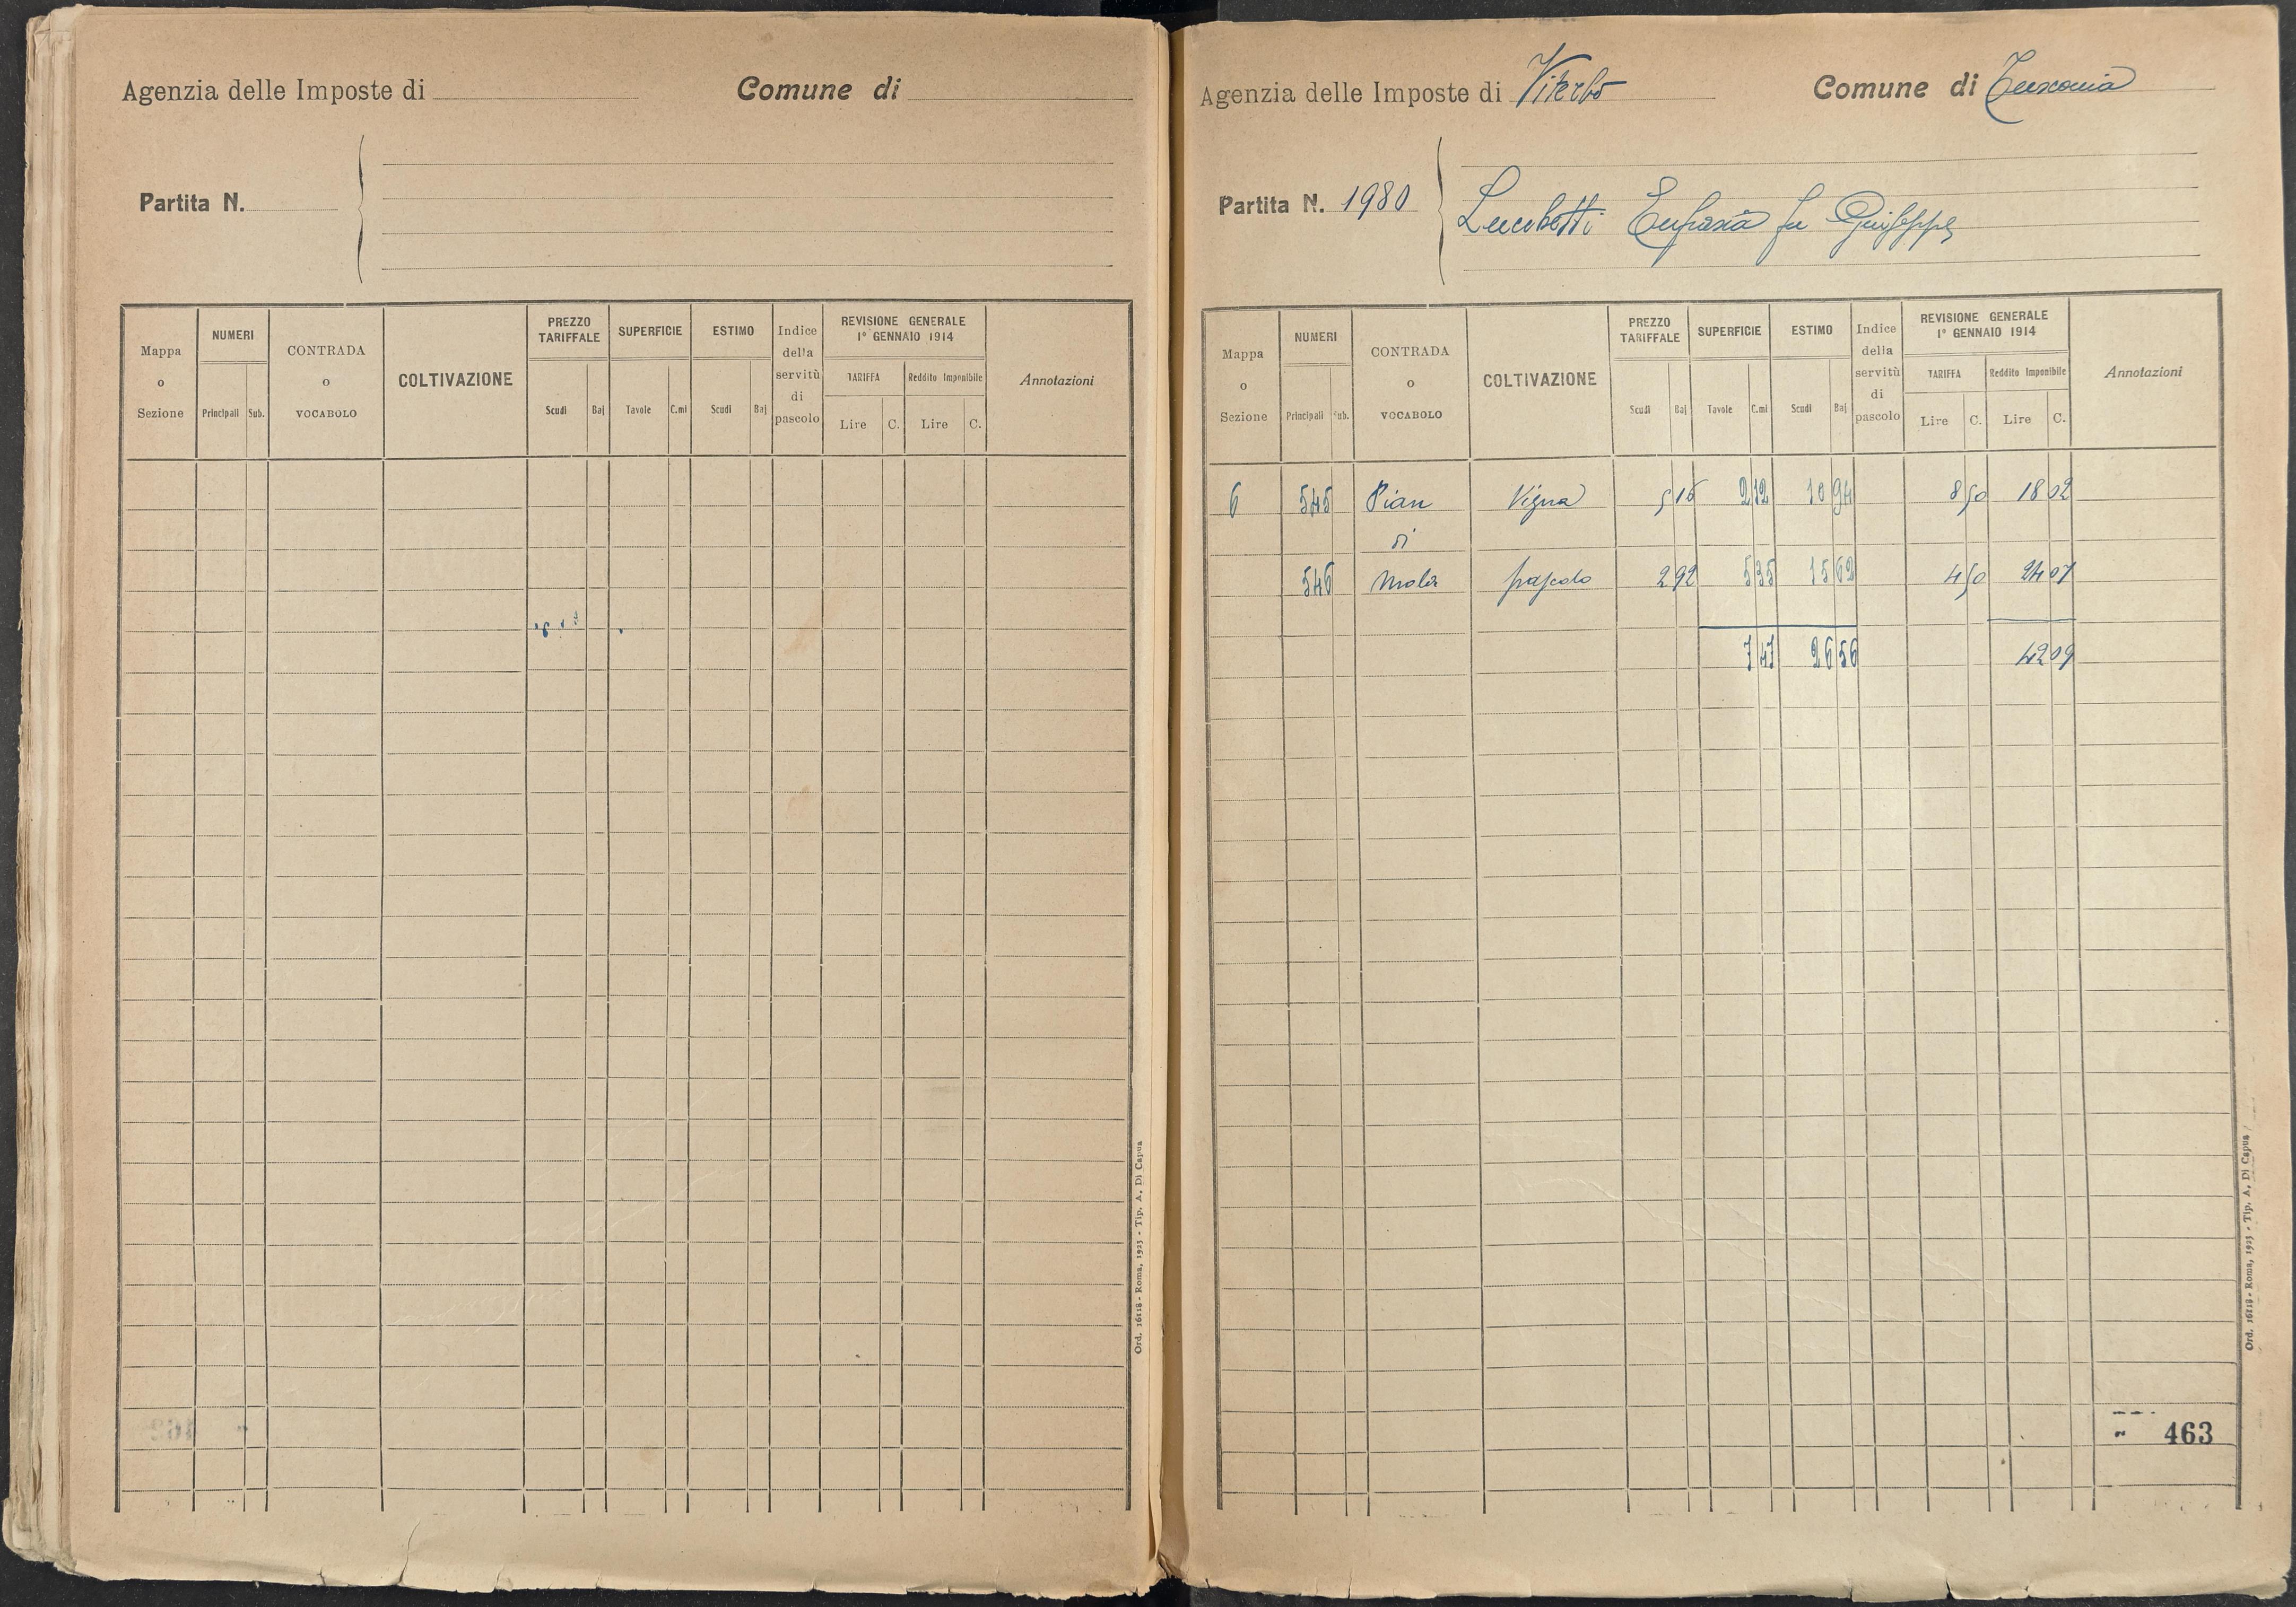 Agenzia delle Imposte di
Comune di
Partita N.
Mappa o Sezione
NUMERI
Principali Sub.
CONTRADA o VOCABOLO
COLTIVAZIONE
PREZZO TARIFFALE
Scudi Baj
SUPERFICIE
Tavole C.mi
ESTIMO
Scudi Baj
Indice della servitù di pascolo
REVISIONE GENERALE
1° GENNAIO 1914
TARIFFA Reddito Imponibile
Lire C. Lire C.
Annotazioni
Ord. 16118 - Roma, 1923 - Tip. A. Di Capua
Agenzia delle Imposte di Viterbo
Comune di Tuscania
Partita N. 1980
Lucchetti Eufrasia fu Giuseppe
Mappa o Sezione
NUMERI
Principali Sub.
CONTRADA o VOCABOLO
COLTIVAZIONE
PREZZO TARIFFALE
Scudi Baj
SUPERFICIE
Tavole C.mi
ESTIMO
Scudi Baj
Indice della servitù di pascolo
REVISIONE GENERALE
1° GENNAIO 1914
TARIFFA Reddito Imponibile
Lire C. Lire C.
Annotazioni
6 545 Pian Vigna 5 16 2 12 10 94 8 50 18 02
di
546 Mola pascolo 2 92 5 35 15 62 4 50 24 07
7 47 26 56 42 09
463
Ord. 16118 - Roma, 1923 - Tip. A. Di Capua